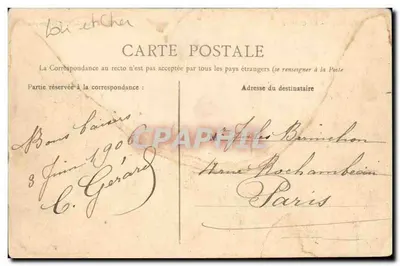 Loir et Cher
CARTE POSTALE
La Correspondance au recto n'est pas acceptée par tous les pays étrangers (se renseigner à la Poste
Partie réservée à la correspondance :
Adresse du destinataire
Bons baisers
3 Juin 1906
C. Gérard
CPARAMA
Jules Brinchon
Rue Rochambeau
Paris